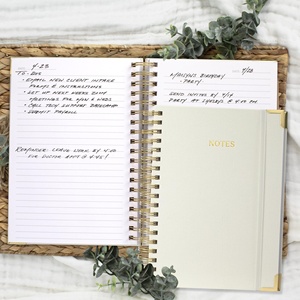 4-23
TO-DOS
• EMAIL NEW CLIENT INTAKE
FORMS & INSTRUCTIONS
• SET UP NEXT WEEKS ZOOM
MEETINGS FOR MON & WEDS
• CALL TECH SUPPORT
• SUBMIT PAYROLL
REMINDER: LEAVE WORK BY 4:00
FOR DOCTOR APPT @ 4:45!
BIRTHDAY
PARTY
SEND INVITES BY
PARTY AT @ 4:00 PM
NOTES